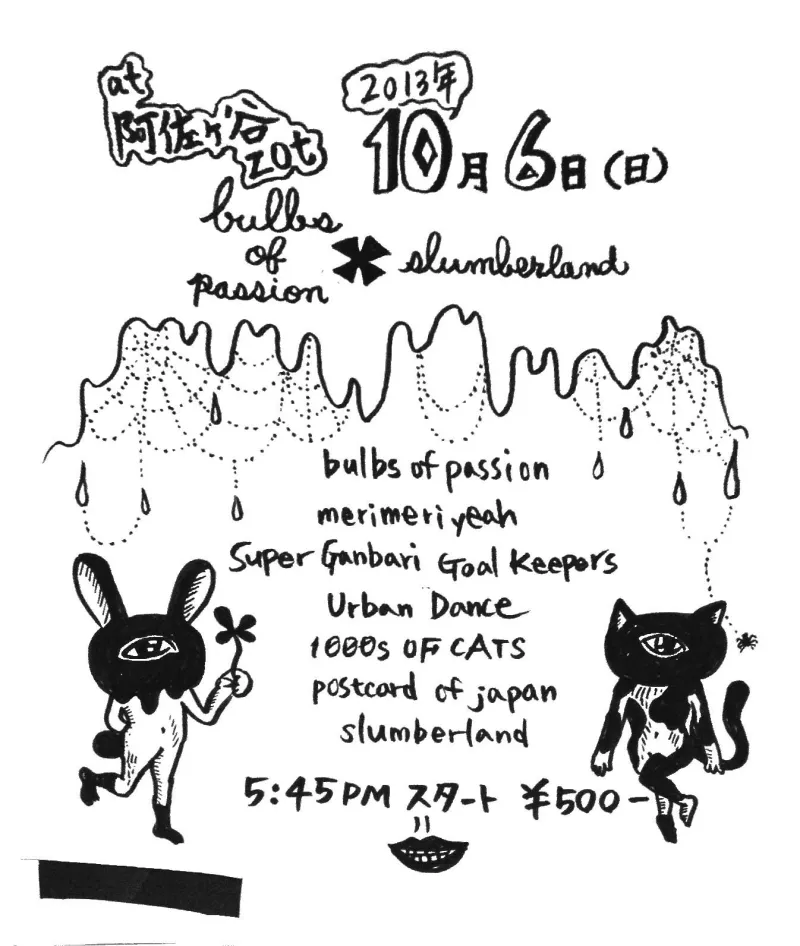 at
阿佐ヶ谷
zot
2013年
10月6日(日)
bulbs
of
passion
slumberland
bulbs of passion
merimeri yeah
Super Ganbari Goal Keepers
Urban Dance
1000s OF CATS
postcard of japan
slumberland
5:45PM スタート ¥500-